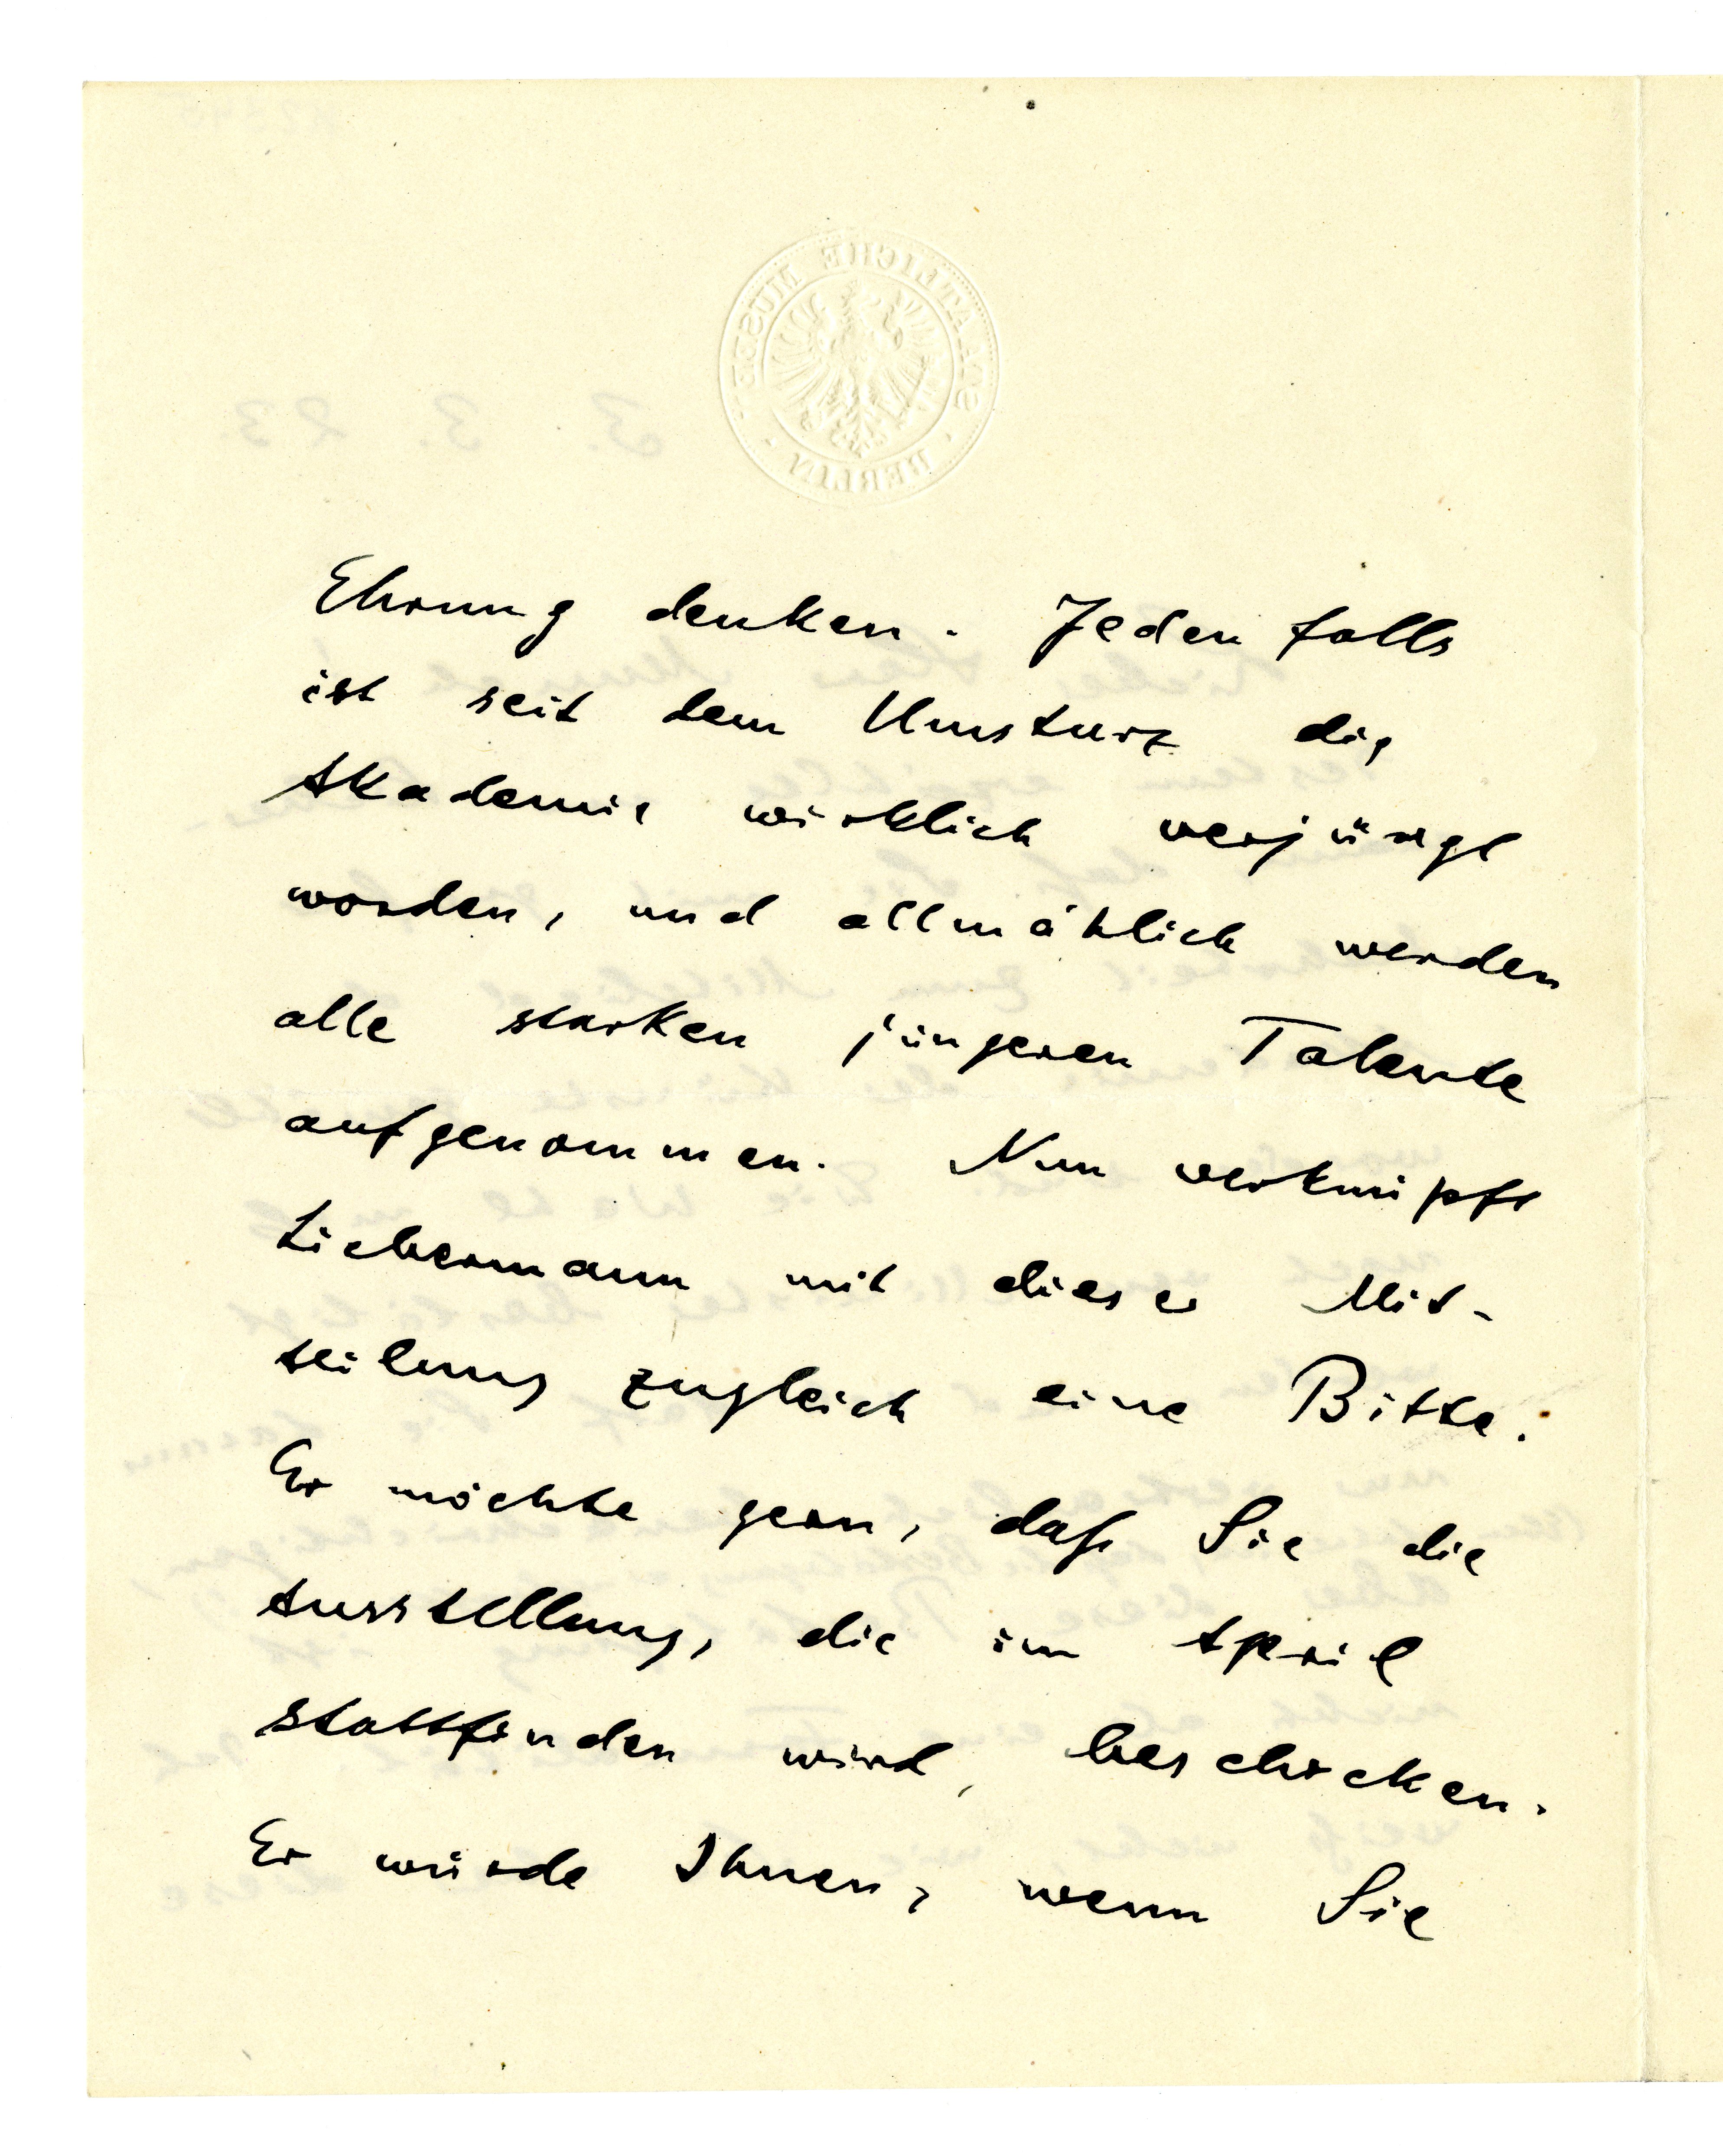 STAATLICHE MUSEEN
BERLIN
3. 3. 23
Ehrung denken. Jedenfalls
ist seit dem Umsturz die
Akademie wirklich verjüngt
worden, und allmählich werden
alle starken jüngeren Talente
aufgenommen. Nun verknüpft
Liebermann mit dieser Mit-
teilung zugleich eine Bitte.
Er möchte gern, daß Sie die
Ausstellung, die im April
stattfinden wird, beschicken.
Er würde Ihnen, wenn Sie